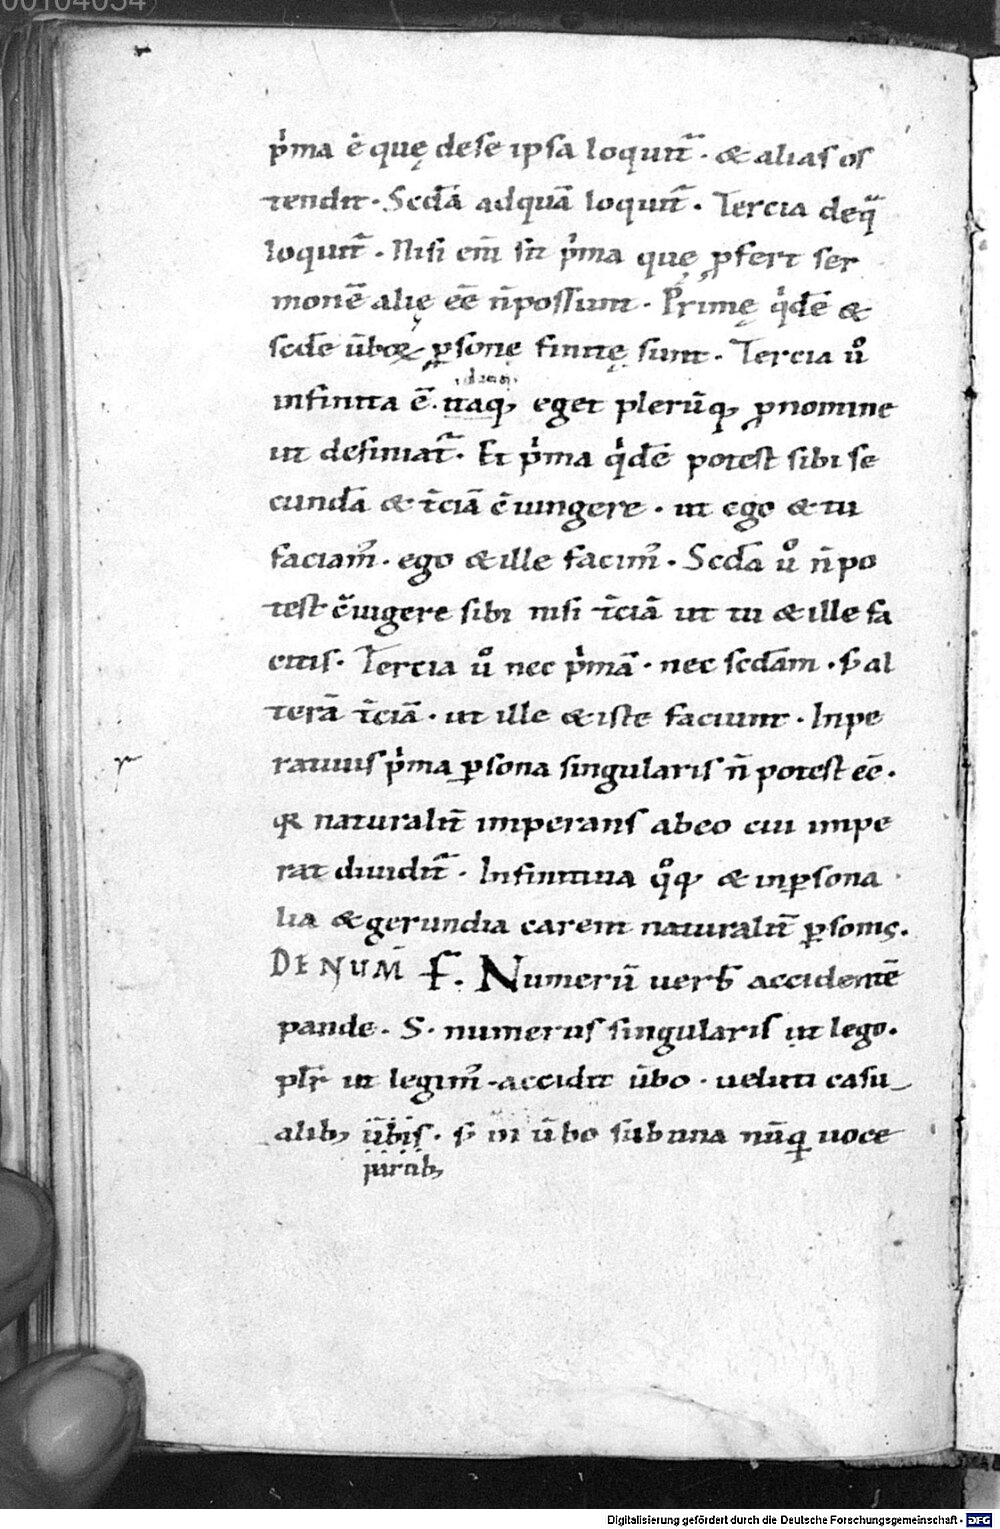 00104054
p'ma ē quę dese ipsa loquit̄. & alias os
tendit. Scd̄a adquā loquit̄. Tercia deq̄
loquit̄. Nisi eni̅ sit p'ma que p̱fert ser
monē alię eē n̄possunt. Primę q'dē &
scd̄e ūboꝝ ꝑsonę finitę sunt. Tercia ů
infinita ē. itaq; eget plerūq; ꝓnomine
ut definiat̄. Et p'ma q'dē potest sibi se
cundā & t̄ciā c̄iungere. ut ego & tu
faciam᾽. ego & ille facim᾽. Scd̄a ů n̄ po
test c̄iūgere sibi nisi t̄ciā ut tu & ille fa
citis. Tercia ů nec p'mā. nec scdam. s̄ al
terā t̄ciā. ut ille & iste faciunt. Inpe
ratiuis p'ma ꝑsona singularis n̄ potest eē.
qꝛ naturalit̄ imperans abeo cui impe
rat diuidit̄. Infinitiua qͦq; & inꝑsona
lia & gerundia carent naturalit̄ ꝑsonis.
DE NUM̄ F. Numerū verb̄ accidentē
pande. S. numerus singularis ut lego.
plr̄ ut legim᾽. accidit ūbo. ueluti casu
alib; ūbis. s̄ in ūbo sub una nūq̄ uoce
Digitalisierung gefördert durch die Deutsche Forschungsgemeinschaft - DFG